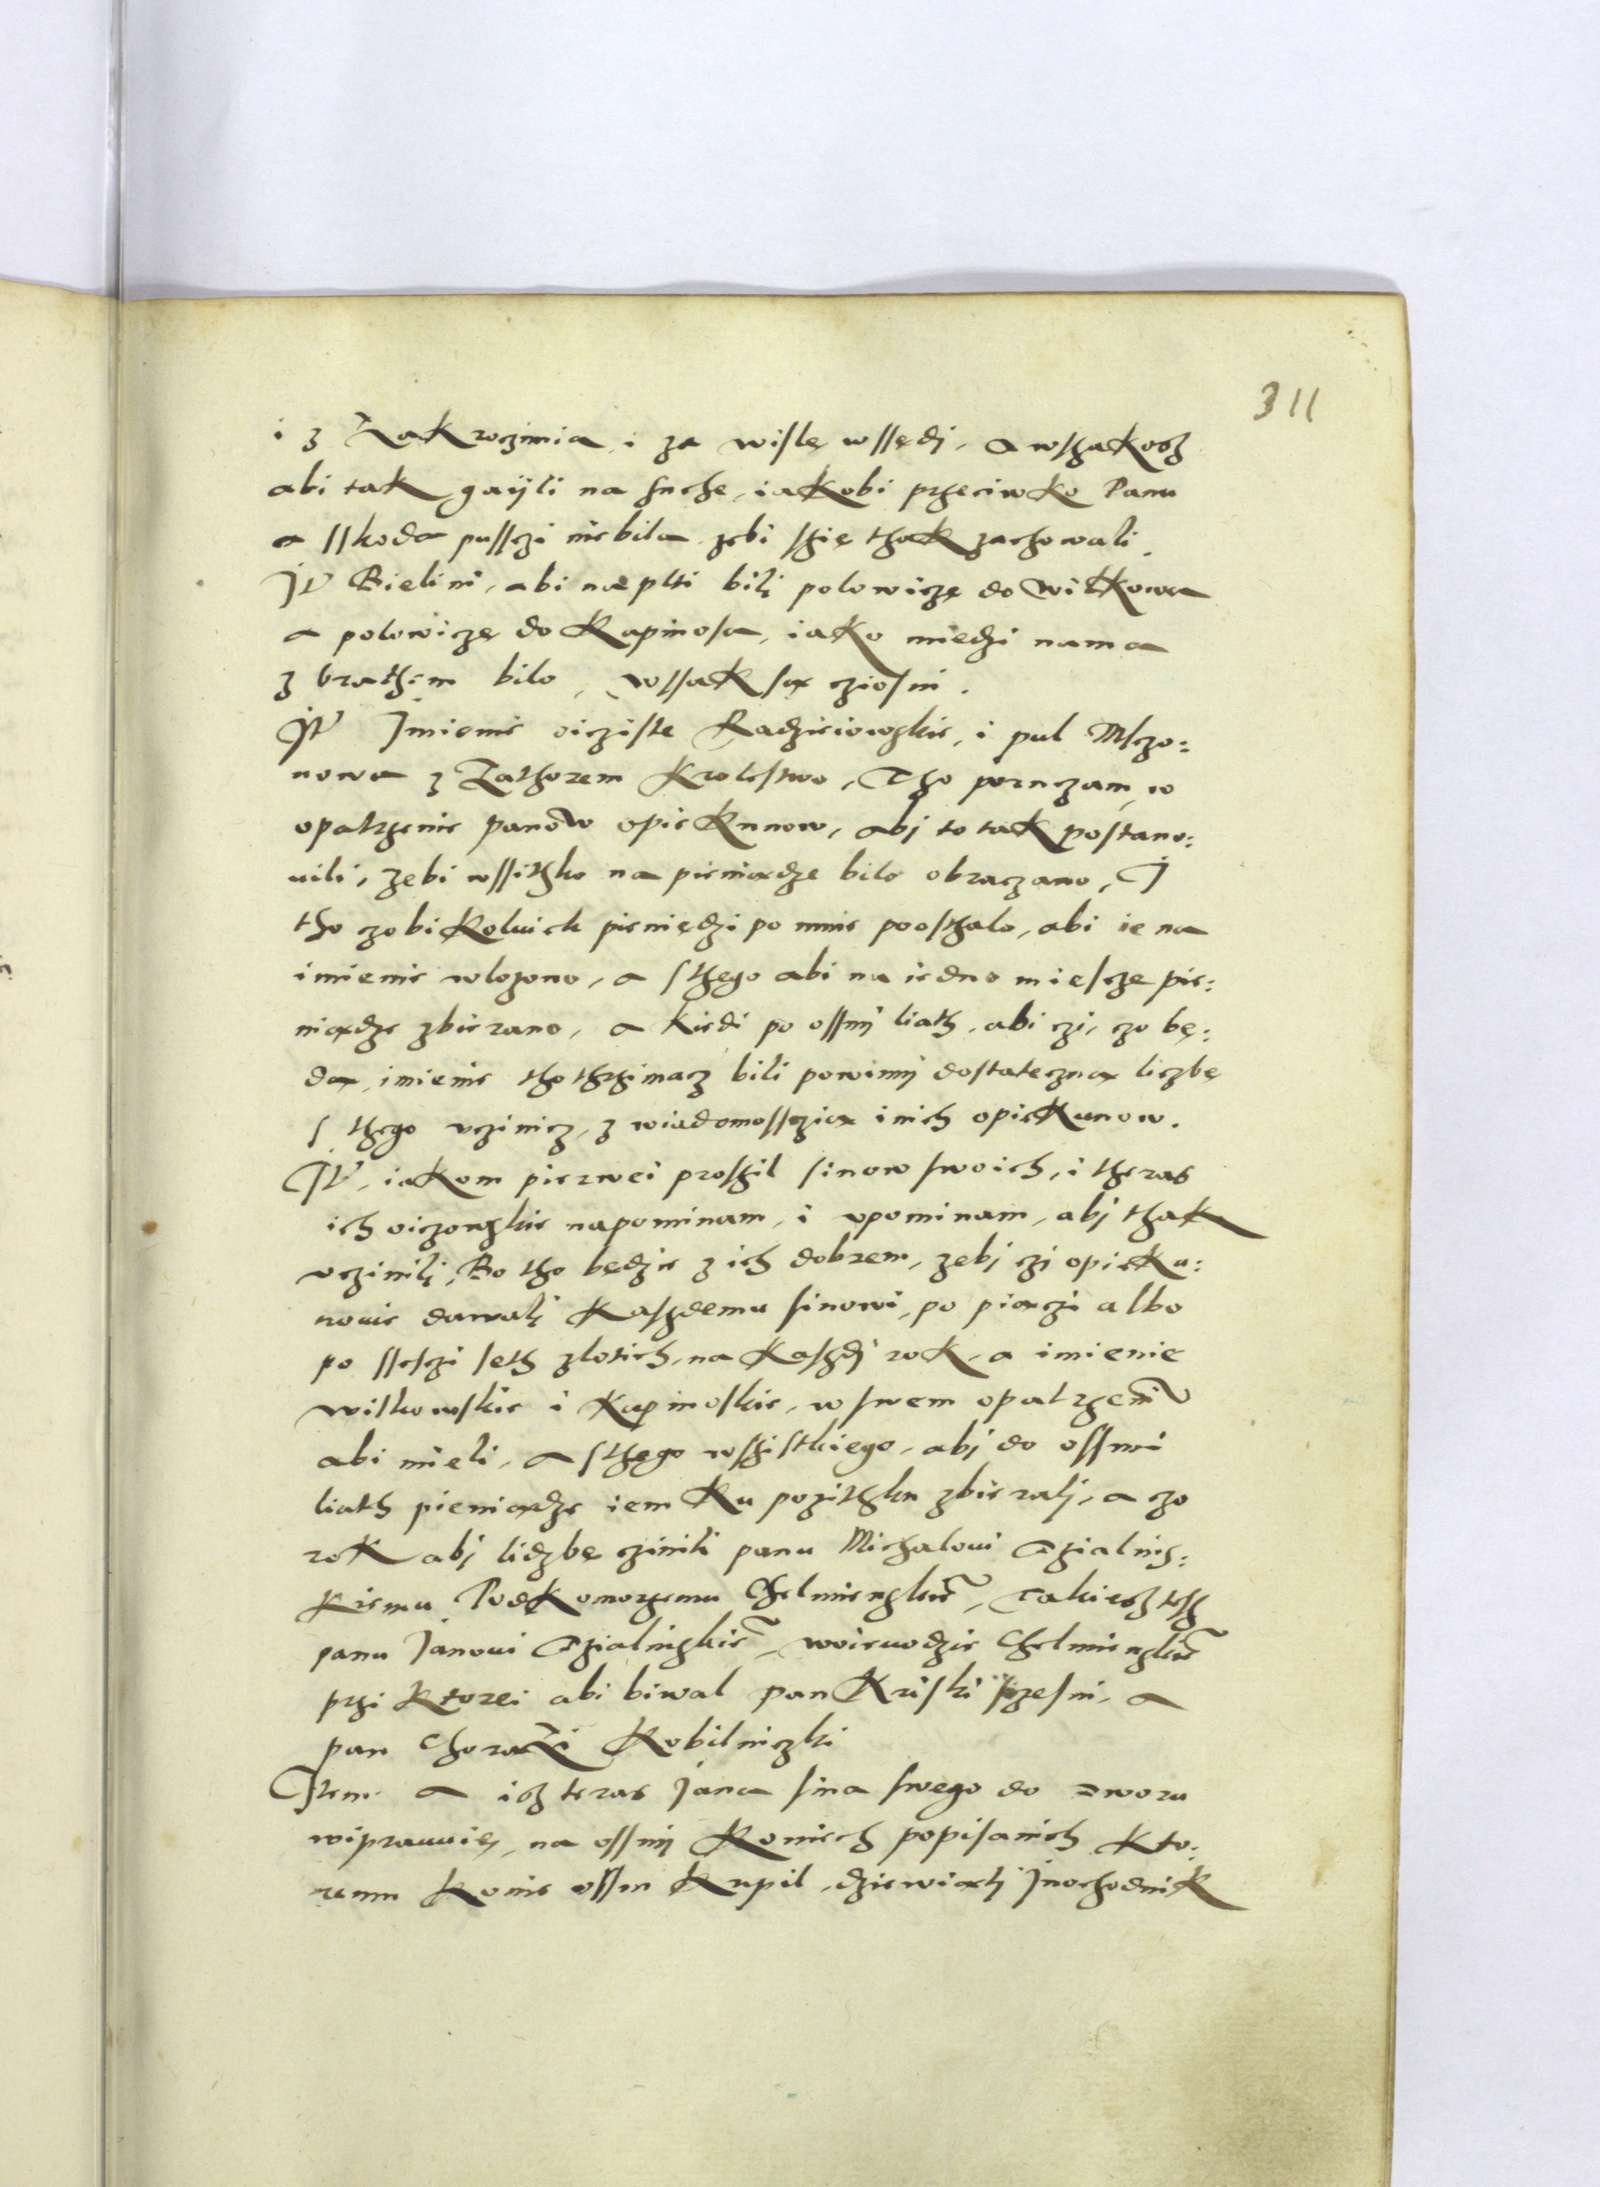 311
i z Zakroczimia, i za wislę wssędj, a wszakosz
abi tak gaÿli na suche, iakobi przeciwko Panu
a sskoda pussczi niebila zebi szię thak zachowali.
Jtē Bielini, abi naeplti bilj polowiczę do Wilkowa
a polowiczę do Kapinosa, iako miedzi nama
z brathem bilo, wssak sąx cziosni.
Jtē Jmienie oicziste Radzieiowskie, i pul Msczo:
nowa z Zathorem Krolestwo, Tho poruczam w
opatrzenie panow opiekunow, abj to tak postano:
uili, zebi wssitko na pieniądze bilo obraczano, J
tho czobikolwiek pieniędzi po mnie poosthalo, abi ie na
imienie wlozono, a sthego abi na iedno miescze pie:
niądze zbierano, a kiedi po ossmj liath, abi czi, czo bę:
dą, imienie tho thrzimacz bili powinnj dostateczną liczbę
s thego vczinicz, z wiadomossczią inich opiekunow.
Jtē, iakom pierwei proszil sinow swoich, i theras
ich oiczowskie napominam, i vpominam, abj thak
vczinilj, Bo tho będzie z ich dobrem, zebj czj opieku:
nowie dawalj kaszdemu sinowi, po piączi albo
po ssesczi seth zlotich, na kaszdj rok, a imienie
wilkowskie i kapinoskie, w swem opatrzeniv
abi mieli, a sthego wszistkiego, abj do ossmi
liath pieniądze iem ku pozithku zbieralj, a czo
rok abj lidzbę czinili panu Michalowi Dzialins:
kiemu Podkomorzemu Chelmienskiē, Takiesz tesz
panu Janowi Dzialinskiē, woiewodzie Chelmienskiē
przi ktorei abi biwal pan Kriski szczesni, a
pan Chorazi Kobilniczki
Jtem a isz teras Jana sina swego do dworu
wiprawuię, na ossmj koniech popisanich kto:
remu konie ossm kupil, dziewiątj Jnochodnik